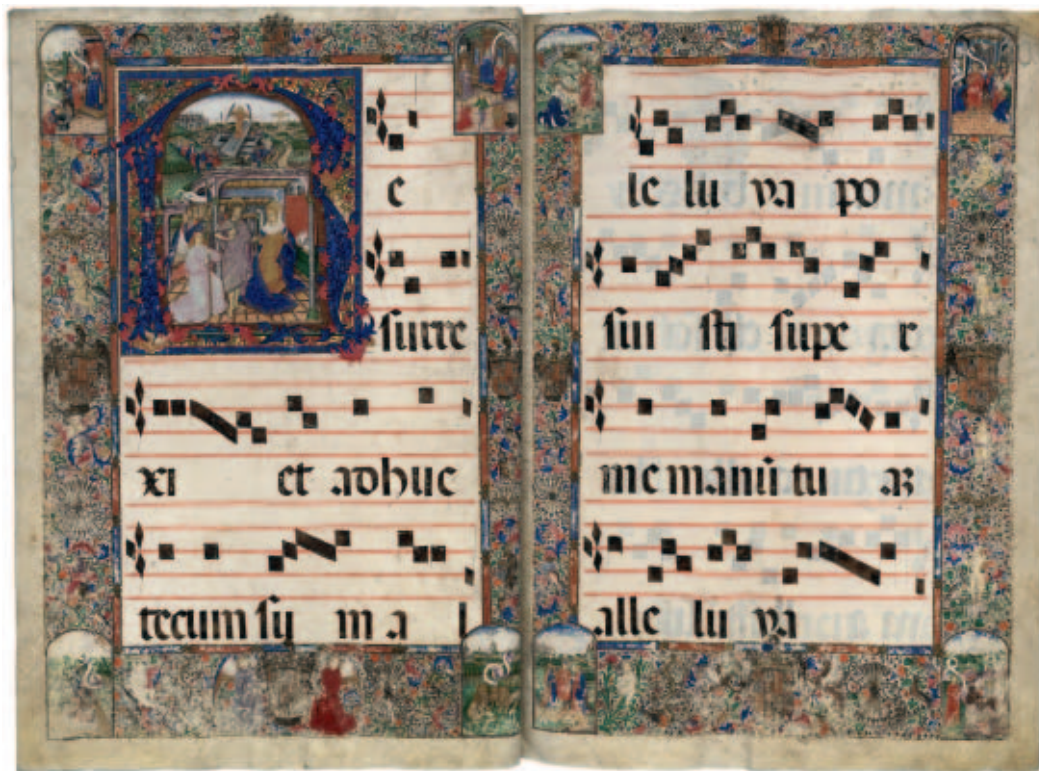 R e
surre
xi et adhuc
tecum su m a l
le lu ya po
sui sti supe r
me manū tu aʒ
alle lu ya